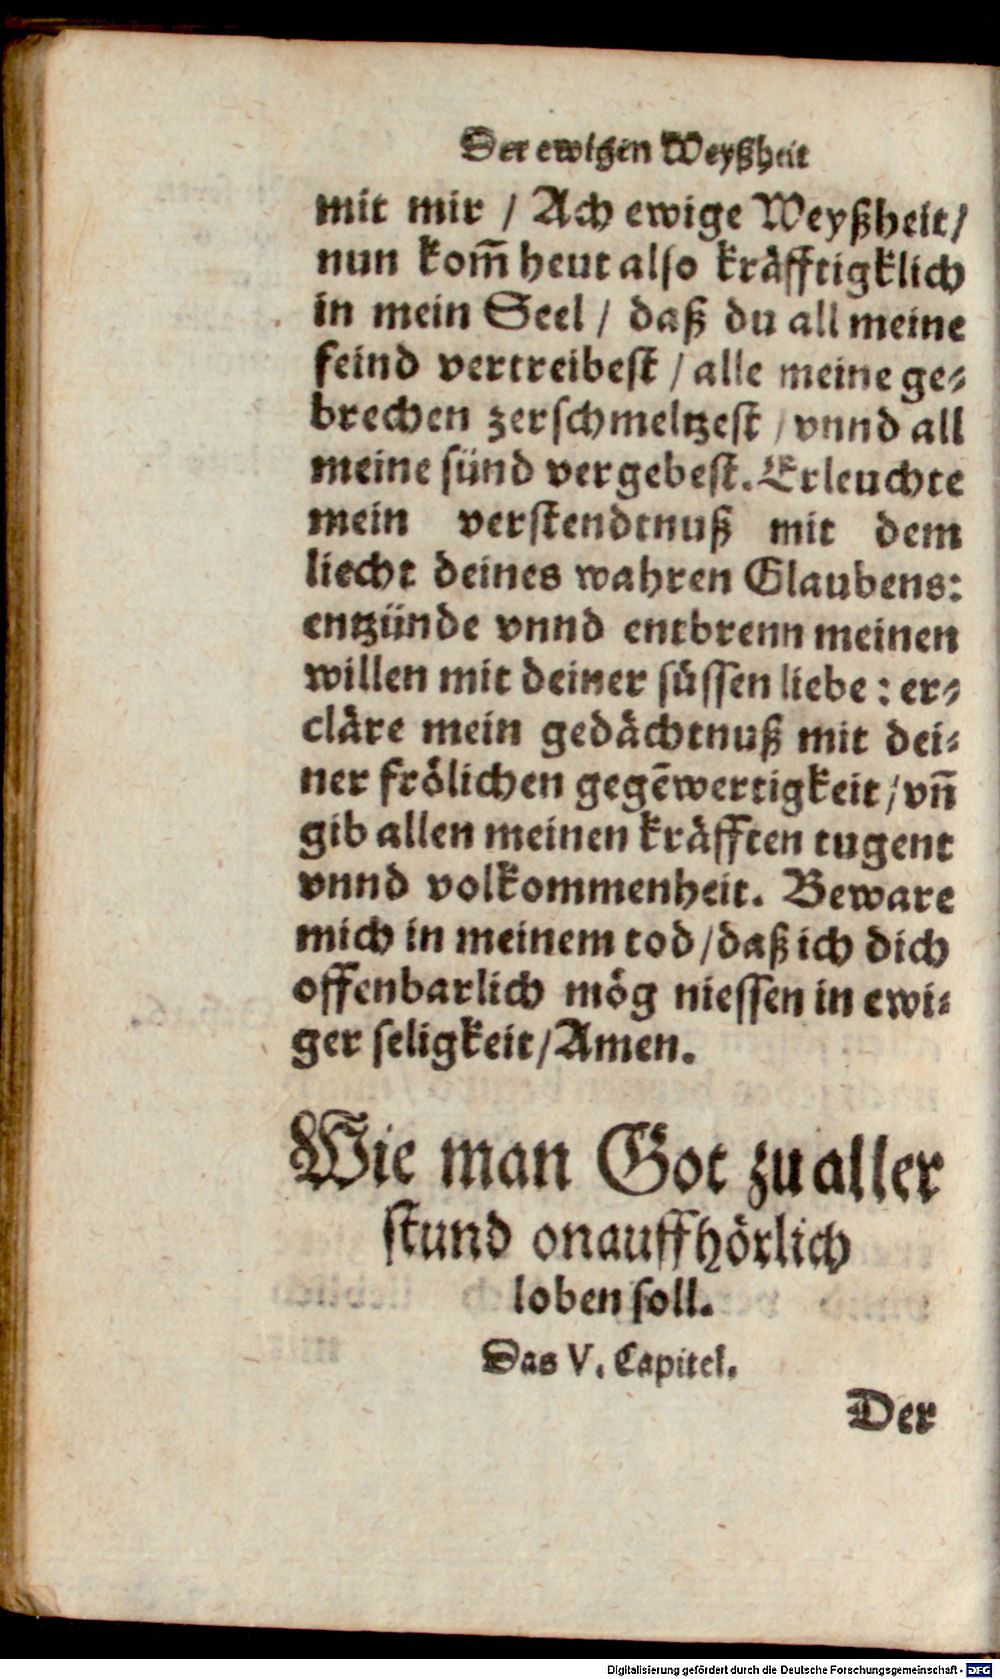 Der ewigen Weyßheit
mit mir / Ach ewige Weyßheit /
nun kom̄ heut also kräfftigklich
in mein Seel / daß du all meine
feind vertreibest / alle meine ge-
brechen zerschmeltzest / vnnd all
meine sünd vergebest. Erleuchte
mein verstendtnuß mit dem
liecht deines wahren Glaubens:
entzünde vnnd entbrenn meinen
willen mit deiner süssen liebe : er-
cläre mein gedächtnuß mit dei-
ner frölichen gegēwertigkeit / vn̄
gib allen meinen kräfften tugent
vnnd volkommenheit. Beware
mich in meinem tod / daß ich dich
offenbarlich mög niessen in ewi-
ger seligkeit / Amen.
Wie man Got zu aller
stund onauffhörlich
loben soll.
Das V. Capitel.
Der
Digitalisierung gefördert durch die Deutsche Forschungsgemeinschaft - DFG